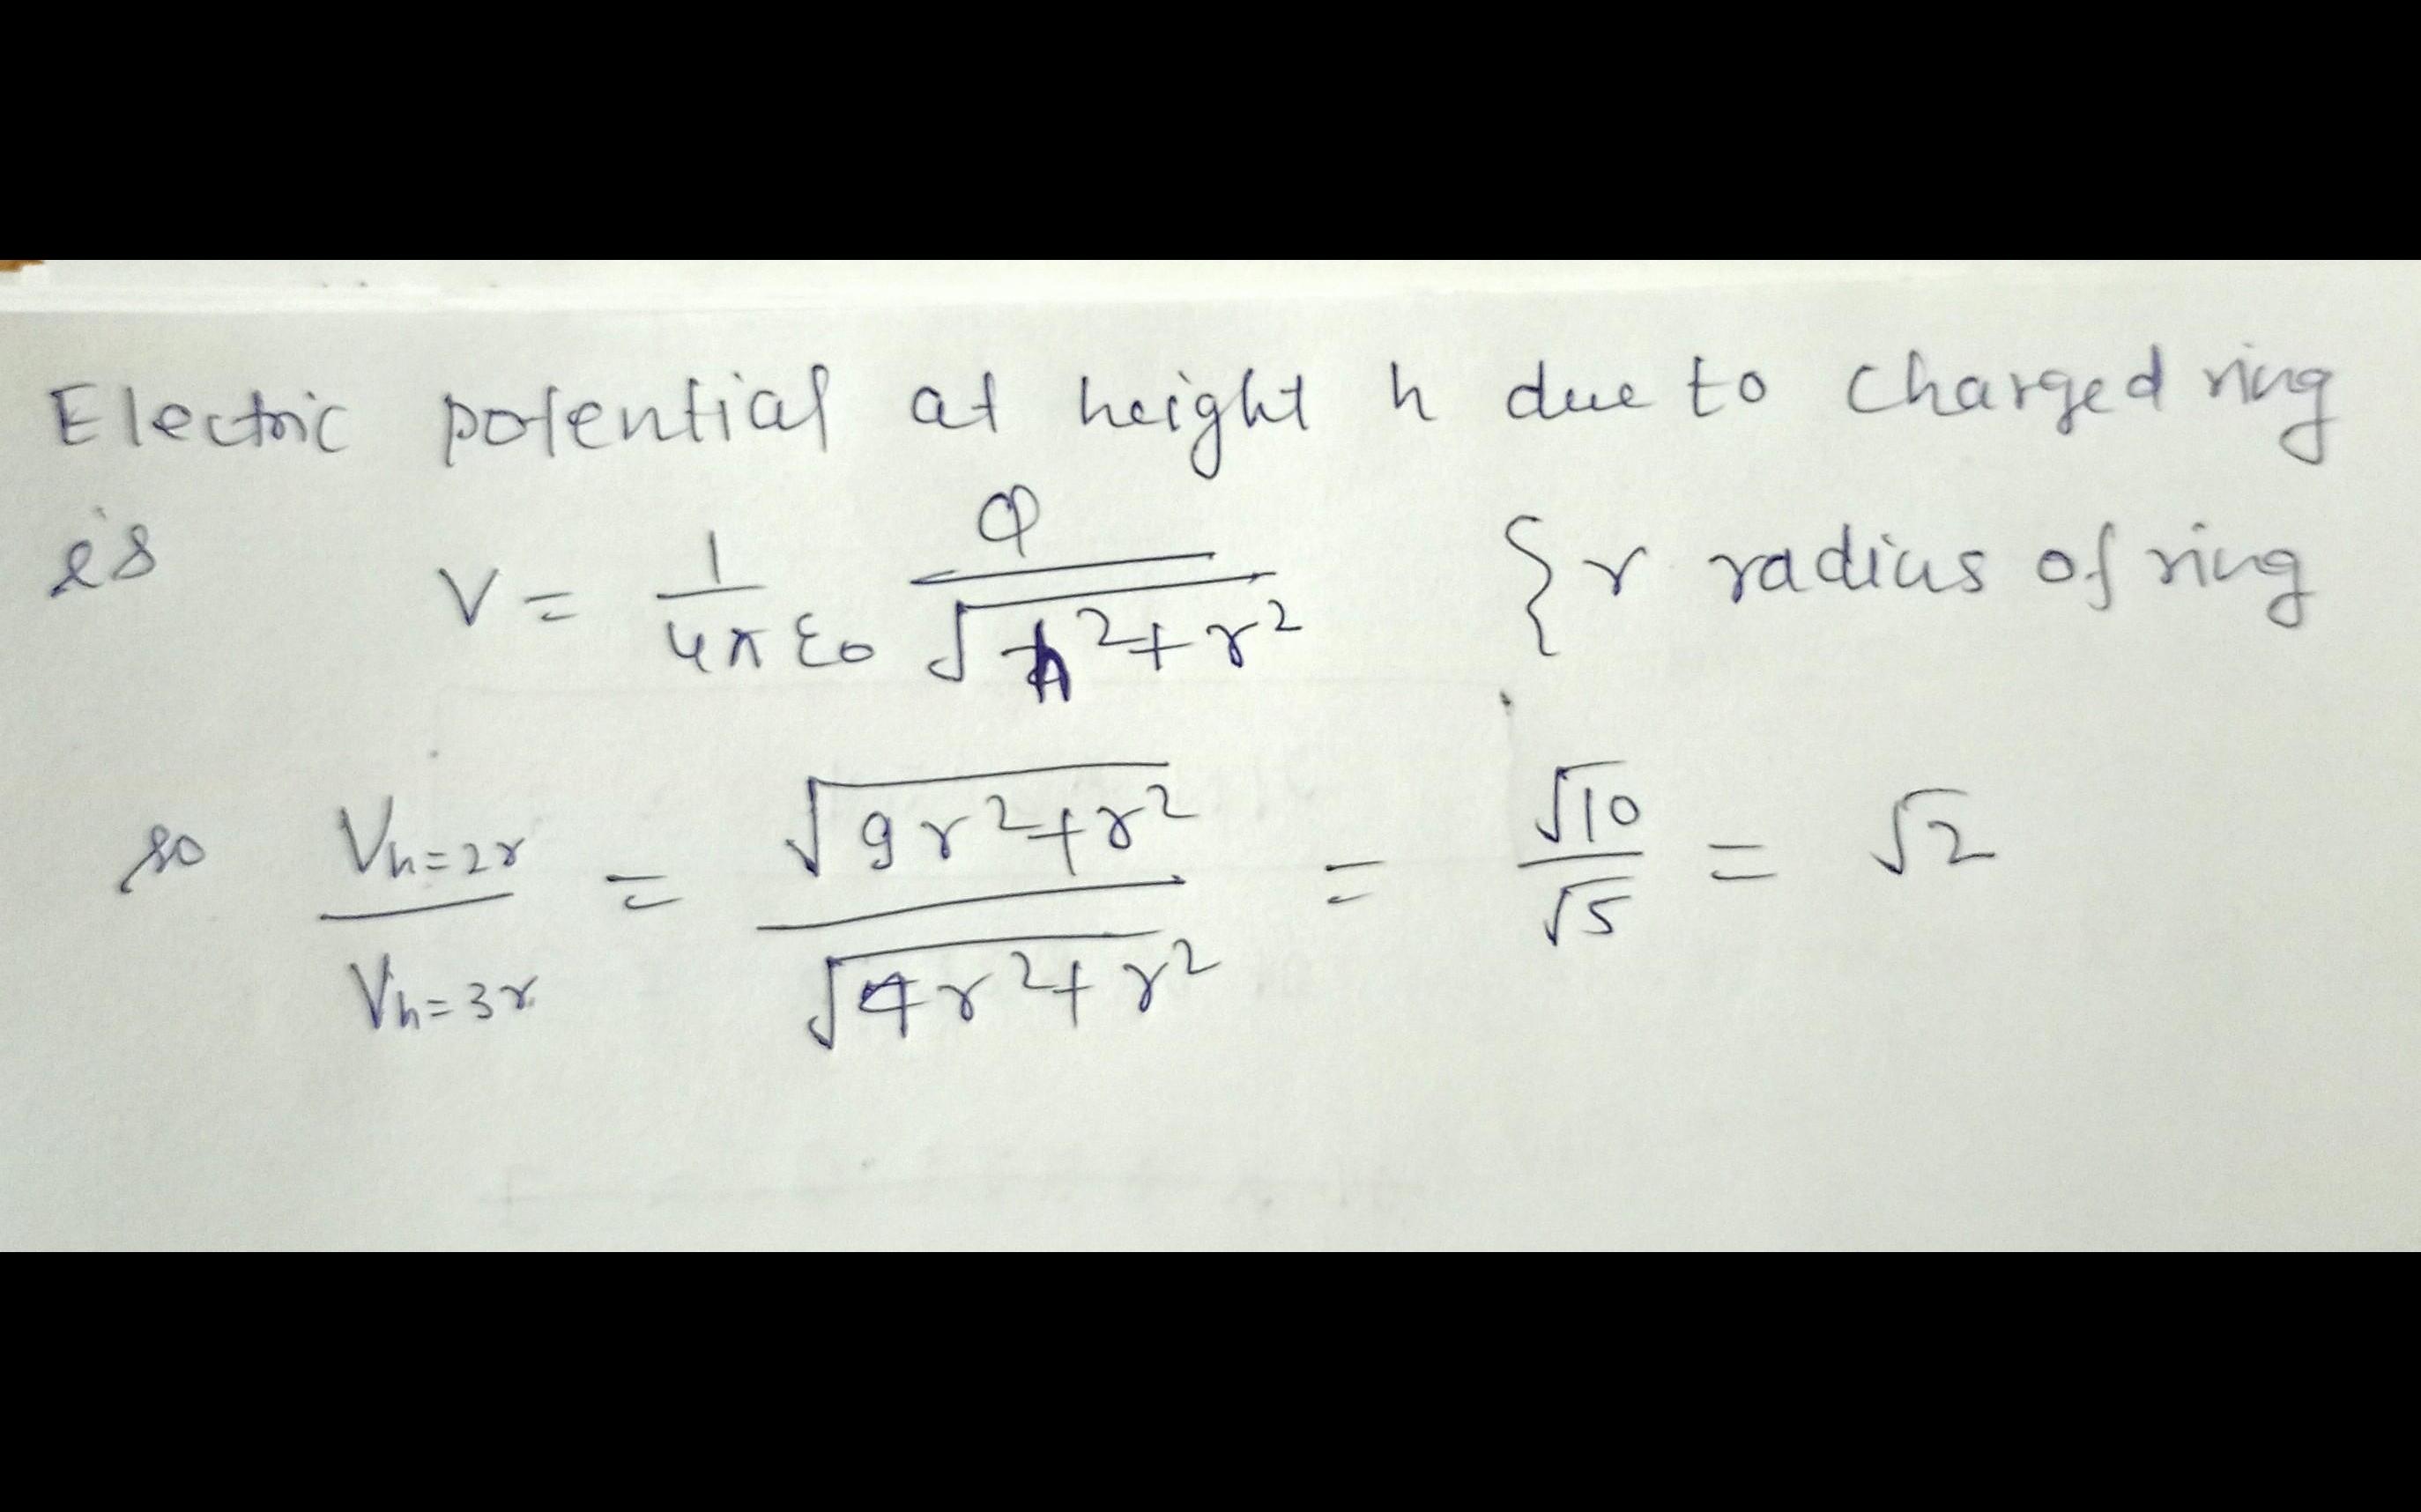 Electric potential at height h due to charged ring
is V = 1/4πε₀ Q/√(h²+r²) {r radius of ring
so V_{h=2r}/V_{h=3r} = √(9r²+r²)/√(4r²+r²) = √10/√5 = √2